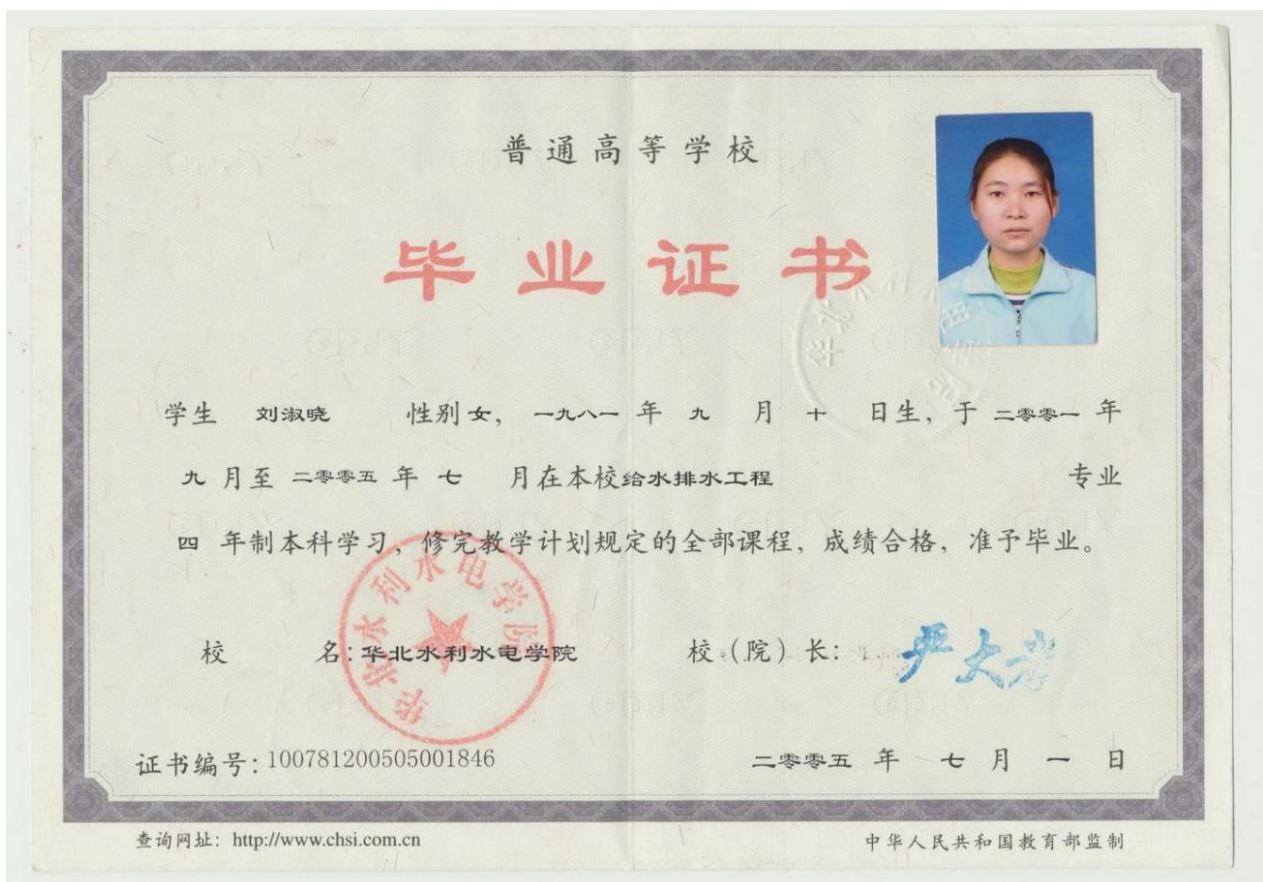 普通高等学校
毕业证书
学生 刘淑晓 性别 女， 一九八一 年 九 月 十 日生，于 二零零一 年
九 月至 二零零五 年 七 月在本校 给水排水工程 专业
四 年制本科学习，修完教学计划规定的全部课程，成绩合格，准予毕业。
校 名：华北水利水电学院 校（院）长：严大考
华北水利水电学院
证书编号：100781200505001846 二零零五 年 七 月 一 日
查询网址：http://www.chsi.com.cn 中华人民共和国教育部监制